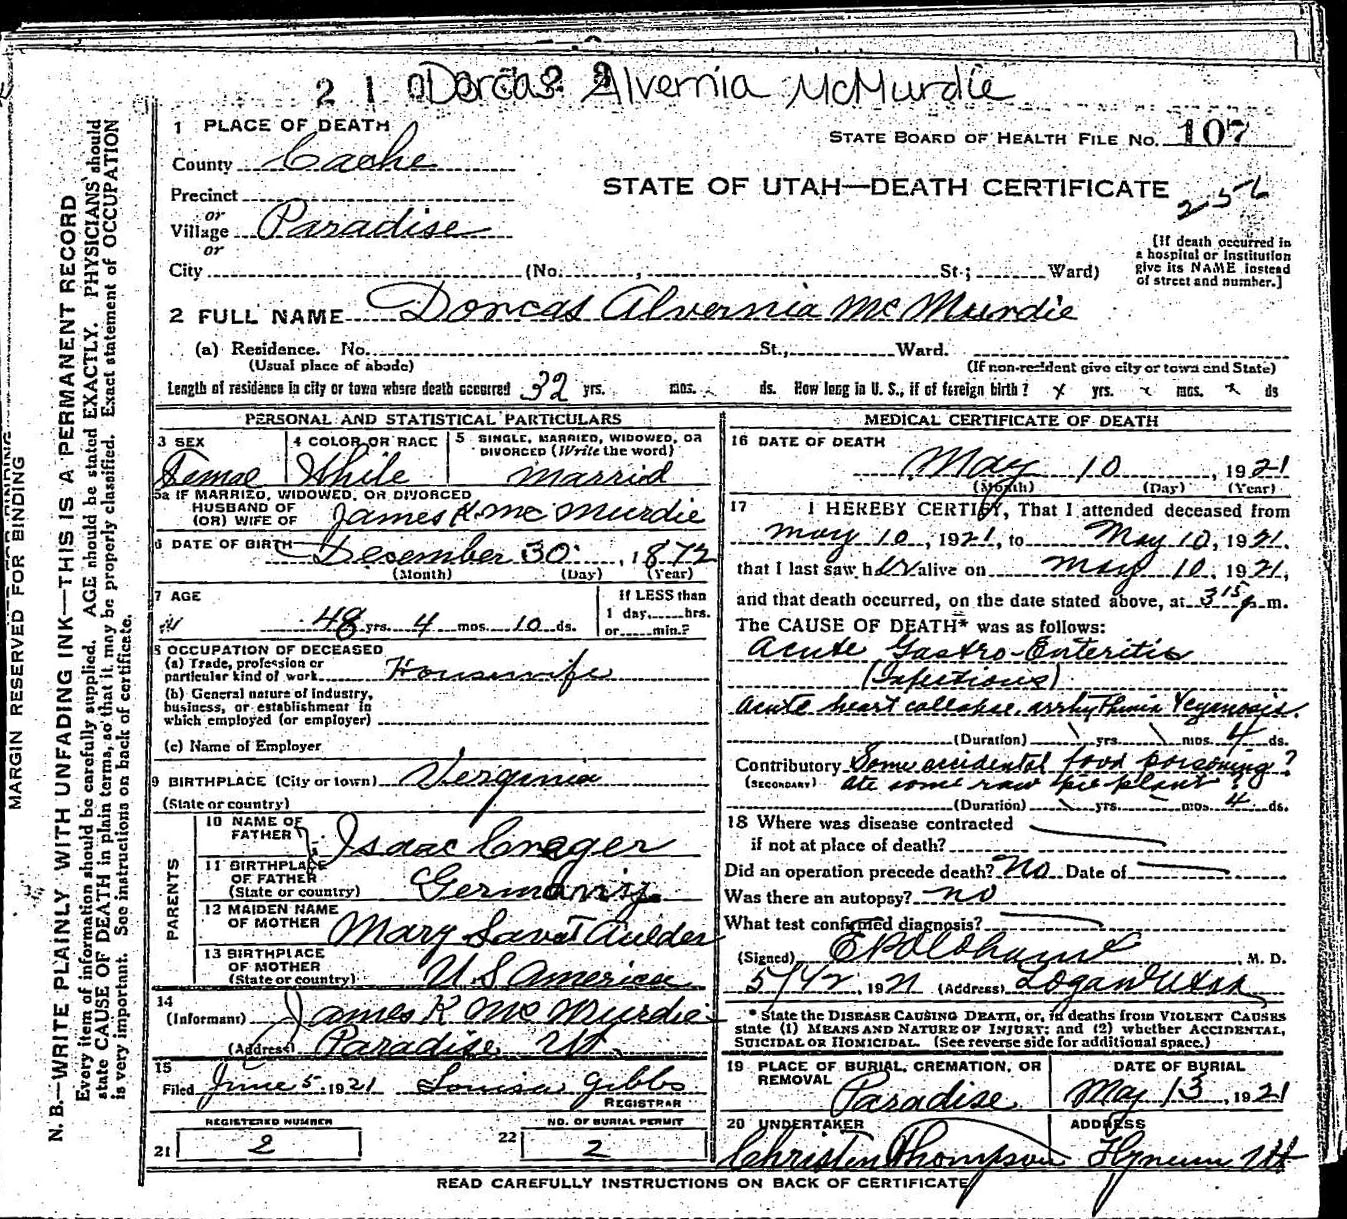 Dorcas Alvernia McMurdie
1 PLACE OF DEATH
STATE BOARD OF HEALTH FILE No. 107
County Cache
STATE OF UTAH—DEATH CERTIFICATE
256
Precinct
or
Village Paradise
or
[If death occurred in
a hospital or institution
give its NAME instead
of street and number.]
City (No. , St.; Ward)
2 FULL NAME Dorcas Alvernia McMurdie
(a) Residence. No. St., Ward.
(Usual place of abode) (If non-resident give city or town and State)
Length of residence in city or town where death occurred 32 yrs. mos. ds. How long in U. S., if of foreign birth? x yrs. mos. x ds
PERSONAL AND STATISTICAL PARTICULARS
3 SEX
Female
4 COLOR OR RACE
White
5 SINGLE, MARRIED, WIDOWED, OR
DIVORCED (Write the word)
Married
5a IF MARRIED, WIDOWED, OR DIVORCED
HUSBAND OF
(OR) WIFE OF James K. McMurdie
6 DATE OF BIRTH December 30, 1872
(Month) (Day) (Year)
7 AGE
48 yrs. 4 mos. 10 ds.
If LESS than
1 day, hrs.
or min.?
8 OCCUPATION OF DECEASED
(a) Trade, profession or
particular kind of work Housewife
(b) General nature of industry,
business, or establishment in
which employed (or employer)
(c) Name of Employer
9 BIRTHPLACE (City or town) Verginia
(State or country)
PARENTS
10 NAME OF
FATHER Isaac Creger
11 BIRTHPLACE
OF FATHER
(State or country) Germany
12 MAIDEN NAME
OF MOTHER Mary
13 BIRTHPLACE
OF MOTHER
(State or country) U S America
14
(Informant) James K McMurdie
(Address) Paradise Ut.
15
Filed June 5, 1921 Louisa Gibbs
REGISTRAR
REGISTERED NUMBER
21 2
NO. OF BURIAL PERMIT
22 2
MEDICAL CERTIFICATE OF DEATH
16 DATE OF DEATH
May 10, 1921
(Month) (Day) (Year)
17 I HEREBY CERTIFY, That I attended deceased from
May 10, 1921, to May 10, 1921,
that I last saw her alive on May 10, 1921,
and that death occurred, on the date stated above, at 3 15 p m.
The CAUSE OF DEATH* was as follows:
Acute Gastro-Enteritis
(Infectious)
acute heart collapse, arrhythmia & cyanosis.
(Duration) yrs. mos. 4 ds.
Contributory Some accidental food poisoning?
(SECONDARY) ate some raw pieplant?
(Duration) yrs. mos. 4 ds.
18 Where was disease contracted
if not at place of death?
Did an operation precede death? No Date of
Was there an autopsy? no
What test confirmed diagnosis?
(Signed) , M. D.
, 1921 (Address) Logan Utah
* State the DISEASE CAUSING DEATH, or, in deaths from VIOLENT CAUSES
state (1) MEANS AND NATURE OF INJURY; and (2) whether ACCIDENTAL,
SUICIDAL OR HOMICIDAL. (See reverse side for additional space.)
19 PLACE OF BURIAL, CREMATION, OR
REMOVAL
Paradise
DATE OF BURIAL
May 13, 1921
20 UNDERTAKER
Christen Thompson
ADDRESS
Hyrum Ut
READ CAREFULLY INSTRUCTIONS ON BACK OF CERTIFICATE
MARGIN RESERVED FOR BINDING
N. B.—WRITE PLAINLY WITH UNFADING INK—THIS IS A PERMANENT RECORD
Every item of information should be carefully supplied. AGE should be stated EXACTLY. PHYSICIANS should
state CAUSE OF DEATH in plain terms, so that it may be properly classified. Exact statement of OCCUPATION
is very important. See instructions on back of certificate.